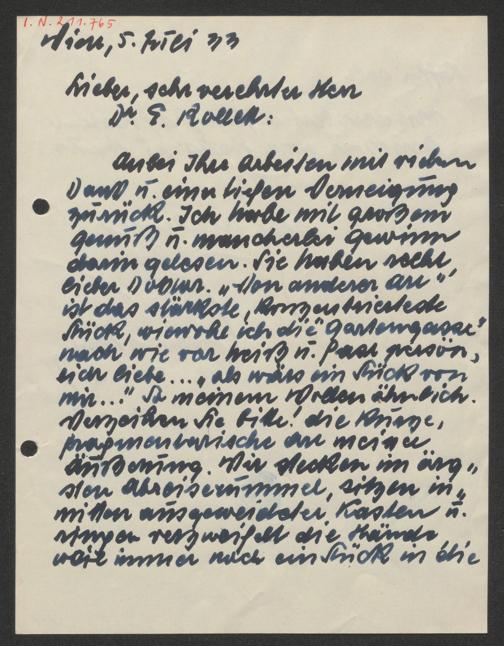 I. N. 211.765
Wien, 5. Juli 33
Lieber, sehr verehrter Herr
Dr. E. Rollett:
Anbei Ihre Arbeiten mit vielem
Dank u. einer tiefen Verneigung
zurück. Ich habe mit großem
Genuß u. mancherlei Gewinn
darin gelesen. Sie haben recht,
lieber Doktor. „Von anderer Art“,
ist das stärkste, konzentrierteste
Stück, wiewohl ich die „Gartengasse“
nach wie vor heiß u. fast persön„
lich liebe... „als wärs ein Stück von
mir...“ So meinem Wollen ähnlich.
Verzeihen Sie bitte! die kurze,
fragmentarische Art meiner
Äußerung. Wir stecken im ärg„
sten Abreiserummel, sitzen in„
mitten ausgeweideter Kasten u.
ringen verzweifelt die Hände,
weil immer noch ein Stück in die